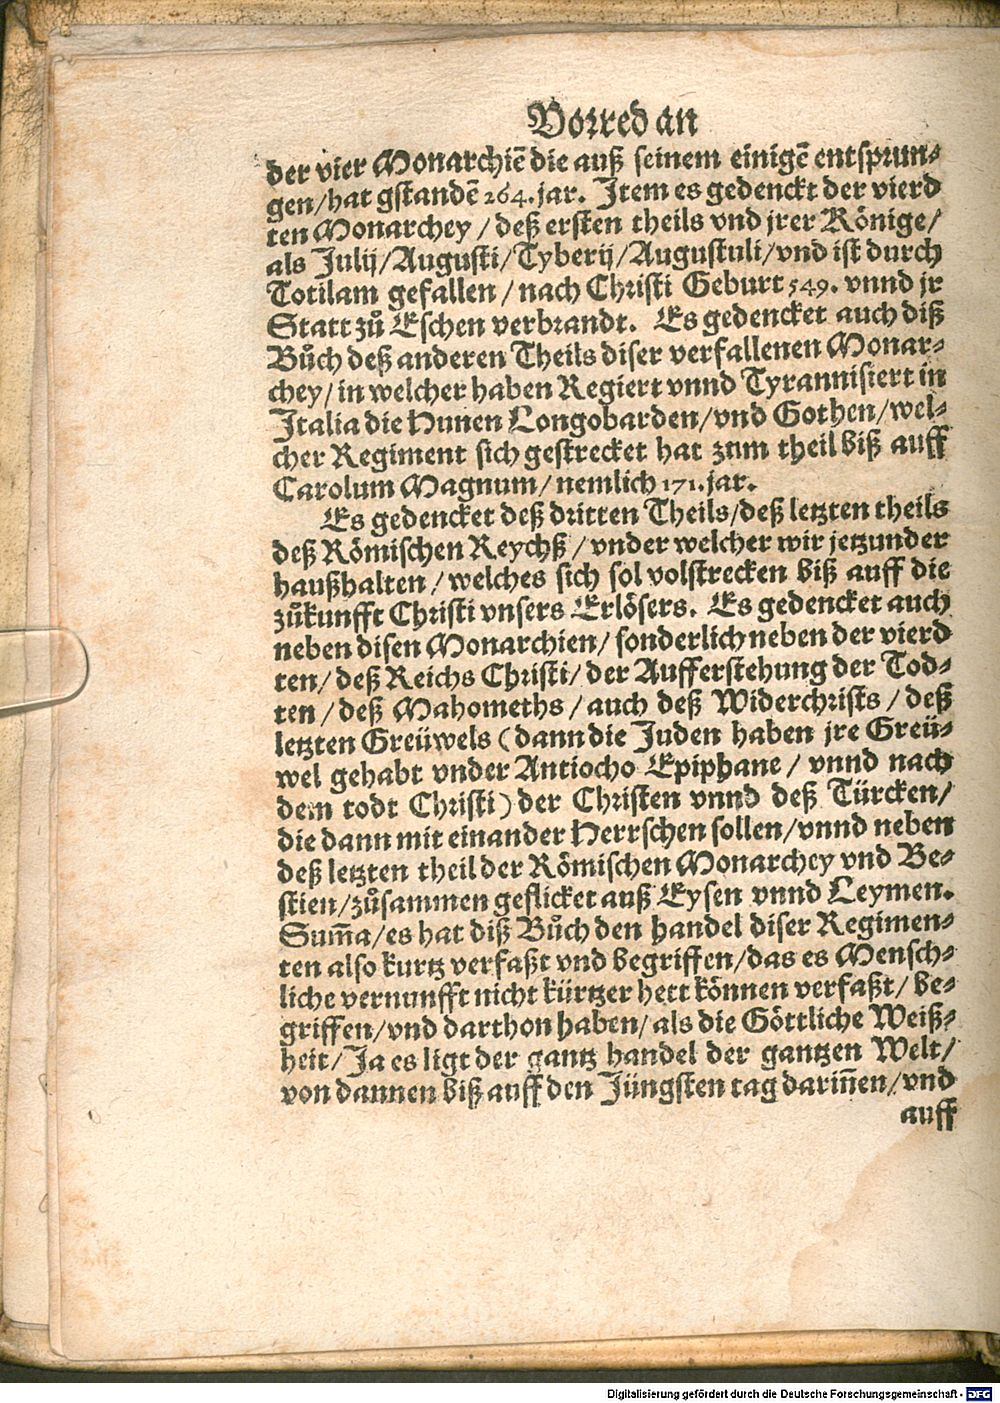 Vorred an
der vier Monarchiē die auß seinem einigē entsprun⸗
gen/hat gstandē 264. jar. Item es gedenckt der vierd
ten Monarchey / deß ersten theils vnd jrer Könige/
als Julij/Augusti/Tyberij/Augustuli/vnd ist durch
Totilam gefallen / nach Christi Geburt 549. vnnd jr
Statt zů Eschen verbrandt. Es gedencket auch diß
Bůch deß anderen Theils diser verfallenen Monar⸗
chey/in welcher haben Regiert vnnd Tyrannisiert in
Italia die Hunen Longobarden/vnd Gothen/wel⸗
cher Regiment sich gestrecket hat zum theil biß auff
Carolum Magnum/nemlich 171. jar.
Es gedencket deß dritten Theils/deß letzten theils
deß Römischen Reychß / vnder welcher wir jetzunder
haußhalten / welches sich sol volstrecken biß auff die
zůkunfft Christi vnsers Erlösers. Es gedencket auch
neben disen Monarchien/ sonderlich neben der vierd
ten/ deß Reichs Christi/ der Aufferstehung der Tod⸗
ten / deß Mahomeths / auch deß Widerchrists / deß
letzten Greüwels (dann die Juden haben jre Greü⸗
wel gehabt vnder Antiocho Epiphane / vnnd nach
dem todt Christi) der Christen vnnd deß Türcken/
die dann mit einander Herrschen sollen/vnnd neben
deß letzten theil der Römischen Monarchey vnd Be⸗
stien/zůsammen geflicket auß Eysen vnnd Leymen.
Sum̄a/es hat diß Bůch den handel diser Regimen⸗
ten also kurtz verfaßt vnd begriffen/das es Mensch⸗
liche vernunfft nicht kürtzer hett können verfaßt/ be⸗
griffen/vnd darthon haben/ als die Göttliche Weiß⸗
heit/Ja es ligt der gantz handel der gantzen Welt/
von dannen biß auff den Jüngsten tag darin̄en/vnd
auff
Digitalisierung gefördert durch die Deutsche Forschungsgemeinschaft - DFG